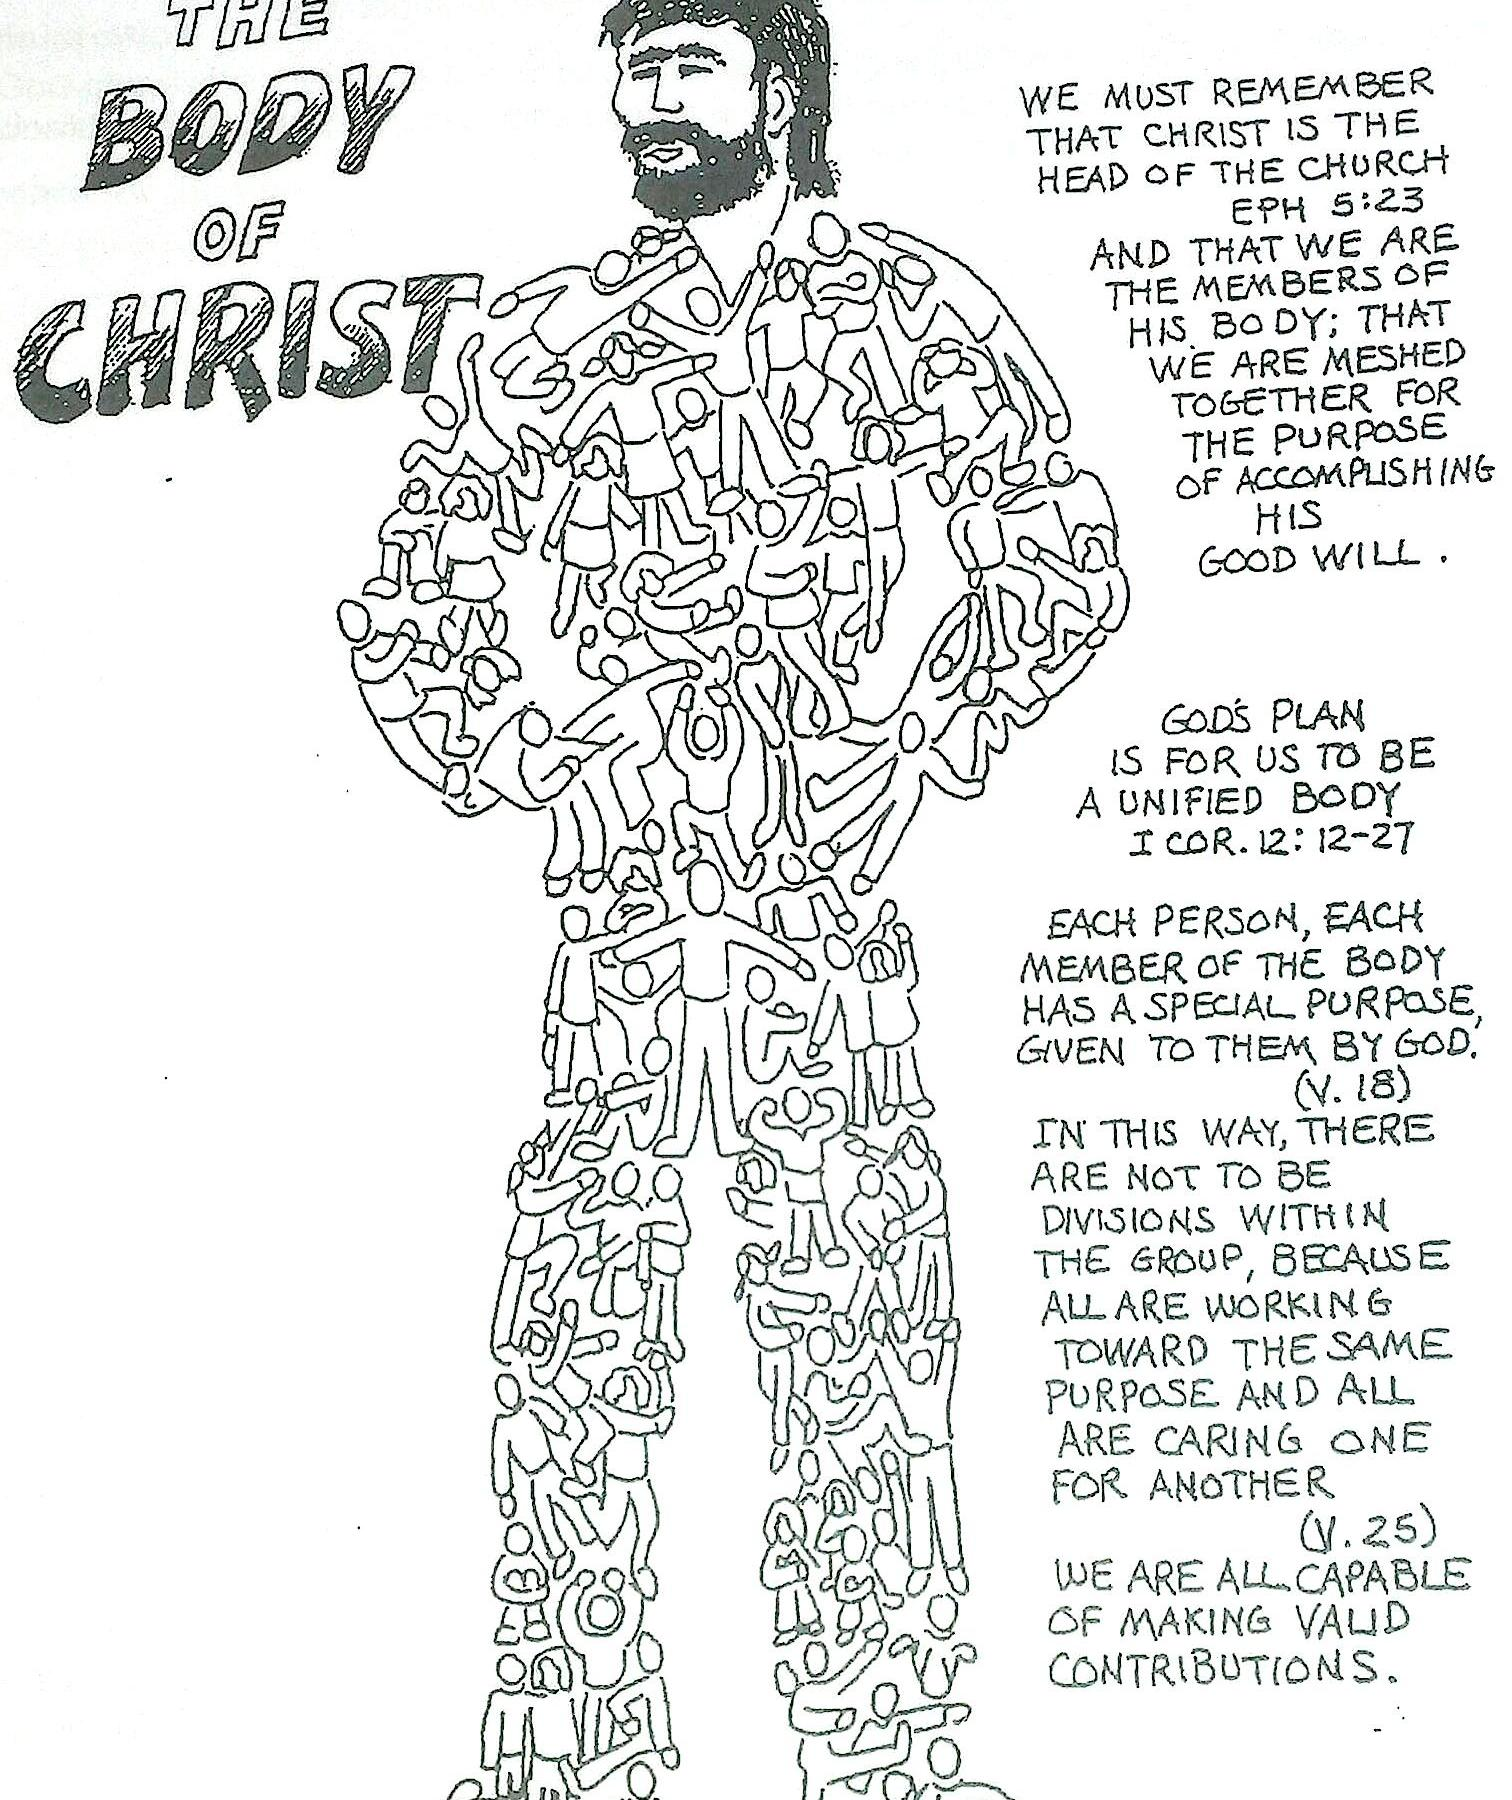 THE
BODY
OF
CHRIST
WE MUST REMEMBER
THAT CHRIST IS THE
HEAD OF THE CHURCH
EPH 5:23
AND THAT WE ARE
THE MEMBERS OF
HIS BODY; THAT
WE ARE MESHED
TOGETHER FOR
THE PURPOSE
OF ACCOMPLISHING
HIS
GOOD WILL.
GOD'S PLAN
IS FOR US TO BE
A UNIFIED BODY
I COR. 12:12-27
EACH PERSON, EACH
MEMBER OF THE BODY
HAS A SPECIAL PURPOSE,
GIVEN TO THEM BY GOD.
(V. 18)
IN THIS WAY, THERE
ARE NOT TO BE
DIVISIONS WITHIN
THE GROUP, BECAUSE
ALL ARE WORKING
TOWARD THE SAME
PURPOSE AND ALL
ARE CARING ONE
FOR ANOTHER
(V. 25)
WE ARE ALL CAPABLE
OF MAKING VALID
CONTRIBUTIONS.